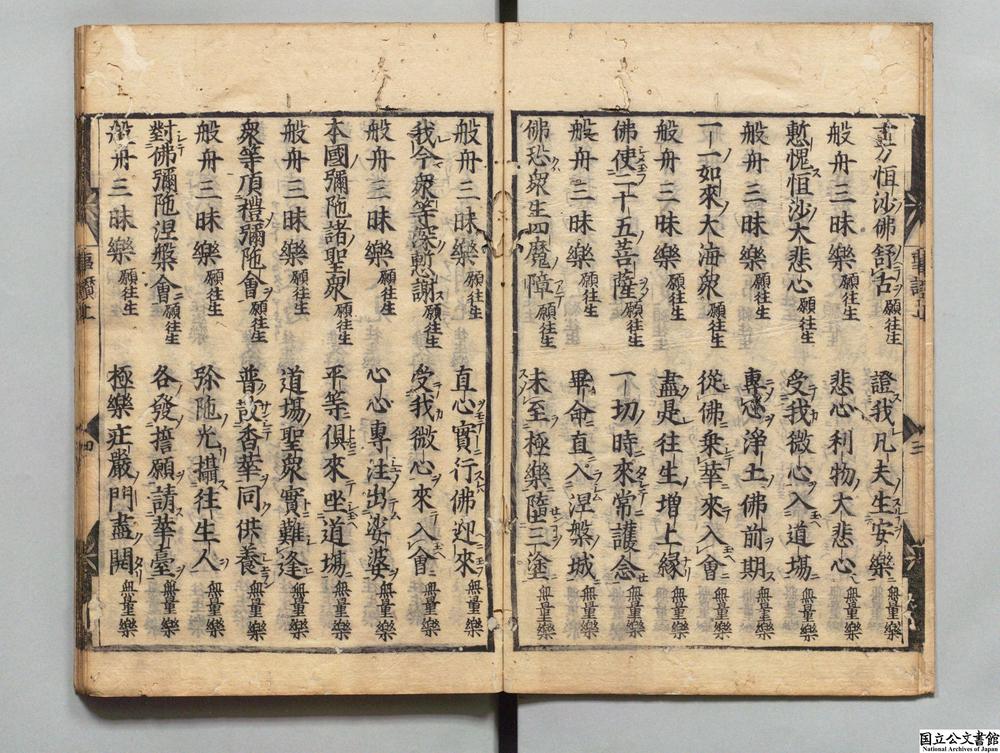 盡十恒沙佛舒舌願往生 證我凡夫生安樂無量樂
般舟三昧樂願往生 悲心利物大悲心無量樂
慙愧恒沙大悲心願往生 受我微心入道場無量樂
般舟三昧樂願往生 專念淨土佛前期無量樂
一一如來大海衆願往生 從佛乗華來入會無量樂
般舟三昧樂願往生 盡是往生增上縁無量樂
佛使二十五菩薩願往生 一切時來常護念無量樂
般舟三昧樂願往生 畢命直入涅槃城無量樂
佛恐衆生四魔障願往生 未至極樂墮三塗無量樂
般舟三昧樂願往生 直心實行佛迎來無量樂
我今衆等深慙謝願往生 受我微心來入會無量樂
般舟三昧樂願往生 心心專注出娑婆無量樂
本國彌陁諸聖衆願往生 平等俱來坐道場無量樂
般舟三昧樂願往生 道場聖衆實難逢無量樂
衆等頂禮彌陁會願往生 普散香華同供養無量樂
般舟三昧樂願往生 弥陁光攝往生人無量樂
對佛彌陁涅槃會願往生 各發誓願請華臺無量樂
般舟三昧樂願往生 極樂莊嚴門盡開無量樂
事讃上
三
事讃上
四
国立公文書館
National Archives of Japan